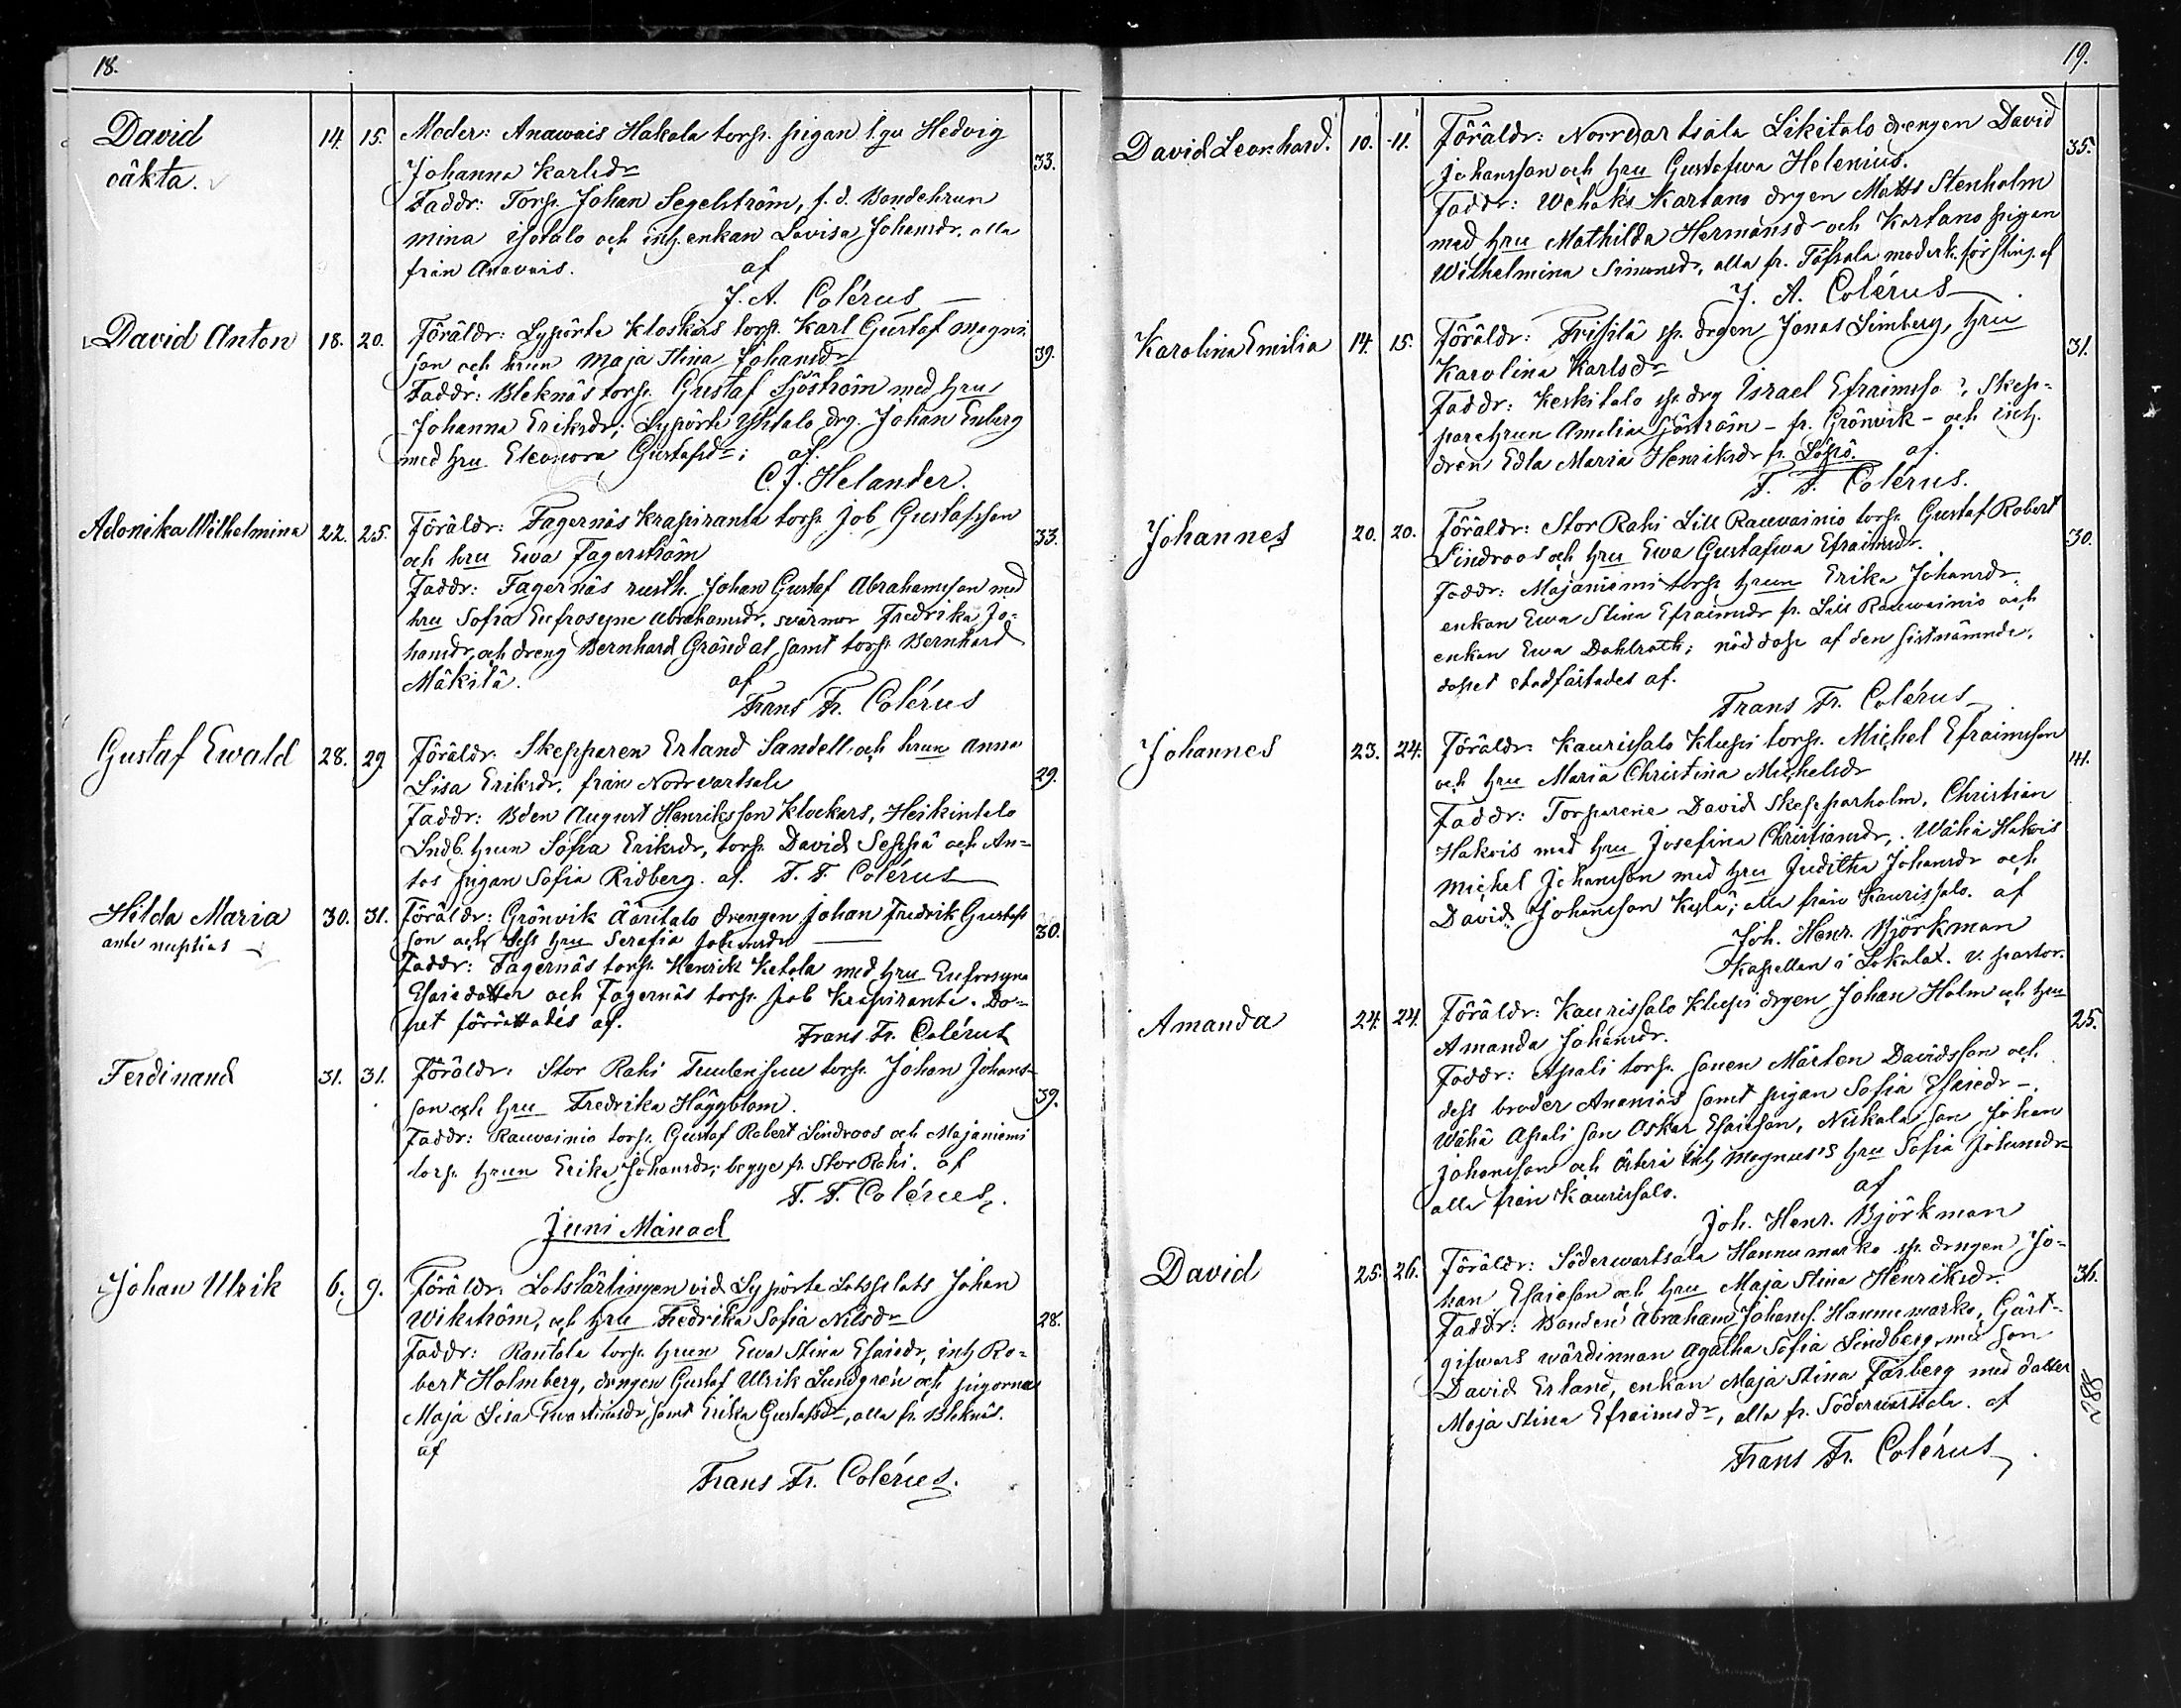 18.
David 14. 15. Moder: Anawais Hakala torp. pigan Hedvig
oäkta. Johanna Karlsdr 33.
Faddr: Torp. Johan Segelström, f. d. Bondehrun
Mina Isotalo och inh. enkan Lovisa Johansdr. alla
från Anavais. af
J. A. Colérus
David Anton 18. 20. Föräldr: Lypörtö Kloskärs torp. Karl Gustaf Magns
son och hrun Maja Stina Johansdr 39.
Faddr: Bleknäs torp. Gustaf Sjöström med hru
Johanna Eriksdr; Lypörtö Ylitalo drg. Johan Enberg
med hru Eleonora Gustafsdr; af.
C. J. Helander.
Adonika Wilhelmina 22. 25. Föräldr: Fagernäs Krapiranta torp. Job Gustafsson 33.
och hru Ewa Fagerström
Faddr: Fagernäs rusth. Johan Gustaf Abrahamsson med
hru Sofia Eufrosyne Abrahamsdr. svärmor Fredrika Jo-
hansdr, och dreng Bernhard Gröndal samt torp. Bernhard
Mäkilä. af
Frans Fr. Colérus
Gustaf Ewald 28. 29 Föräldr. Skepparen Erland Sandell och hrun Anna
Lisa Eriksdr. från Norrvartsala 29.
Faddr: Bden August Henriksson Klockars, Heikintalo
Lndb. hrun Sofia Eriksdr, torp. David Seppä och An-
tas pigan Sofia Ridberg. af. F. F. Colérus
Hilda Maria 30. 31. Föräldr: Grönvik Ääritalo drengen Johan Fredrik Gustafs
ante nuptias son och dess hru Serafia Johansdr 30.
Faddr: Fagernäs torp. Henrik Ketola med hru Eufrosyna
Esaiedotter och Fagernäs torp. Job Krapiranta. Do-
pet förrättades af. Frans Fr. Colérus
Ferdinand 31. 31. Föräldr: Stor Rahi Tuulensuu torp. Johan Johans-
son och hru Fredrika Häggblom. 39.
Faddr: Rauvainio torp. Gustaf Robert Lindroos och Majaniemi
torp. hrun Erika Johansdr; begge fr. Stor Rahi. af
F. F. Colérus.
Juni Månad
Johan Ulrik 6. 9. Föräldr: Lotslärlingen vid Lypörtö Lotsplats Johan
Wikström, och hru Fredrika Sofia Nilsdr 28.
Faddr: Rantala torp. hrun Ewa Stina Esaiedr, inh Ro-
bert Holmberg, drengen Gustaf Ulrik Lundgrén och pigorna
Maja Lisa samt Erika Gustafsdr, alla fr. Bleknäs.
af
Frans Fr. Colérus.
19.
David Leonhard. 10. 11. Föräldr: Norrvartsala Likitalo drengen David 35.
Johansson och hru Gustafwa Helenius.
Faddr: Wehaks Kartano drgen Matts Stenholm
med hru Mathilda Hermansdr och Kartano pigan
Wilhelmina Simonsdr, alla fr. Töfsala moderk. församling. af
J. A. Colérus
Karolina Emilia 14. 15. Föräldr: Frisilä sp. drgen Jonas Limberg, hru 31.
Karolina Karlsdr
Faddr: Keskitalo sp. drg Israel Efraimsso , Skep-
parehrun Amalia Sjöström - fr. Grönvik - och inh.
dren Edla Maria Henriksdr fr. Löpö. af.
F. F. Colérus.
Johannes 20. 20. Föräldr: Stor Rahi Lill Rauvainio torp. Gustaf Robert 30.
Lindroos och hru Ewa Gustafwa Efraimsdr.
Faddr: Majaniemi torp. hrun Erika Johansdr.
enkan Ewa Stina Efraimsdr fr. Lill Rauvainio och
enkan Ewa Dahlroth; nöddop af den sistnämnde,
dopet stadfästades af.
Frans Fr. Colérus
Johannes 23. 24. Föräldr: Kaurissalo Klupi torp. Michel Efraimsson 41.
och hru Maria Christina Michelsdr
Faddr: Torparene David Skepparholm, Christian
Hakois med hru Josefina Christiansdr, Wähä Hakois
Michel Johansson med hru Juditha Johansdr och
David Johansson Kylä; alla från Kaurissalo. af
Joh. Henr. Björkman
Kapellan i Lokalax. v. pastor.
Amanda 24. 24. Föräldr: Kaurissalo Klupi drgen Johan Holm och hru 25.
Amanda Johansdr.
Faddr: Apali torp. sonen Mårten Davidsson och
dess broder Ananias samt pigan Sofia Esaiedr -.
Wähä Apali son Oskar Esaisson, Niskala son Johan
Johansson och inh Magnus's hru Sofia Johansdr
alla från Kaurissalo. af
Joh. Henr. Björkman
David 25. 26. Föräldr: Söderwartsala Hannumarko sp. drngen Jo- 36.
han Esaieson och hru Maja Stina Henriksdr.
Faddr: Bonden Abraham Johans. Hannumarko, Gäst-
gifwars wärdinnan Agatha Sofia Lindberg med son
David Erland, enkan Maja Stina Farberg med dotter
Maja Stina Efraimsdr, alla fr. Söderwartsala. af
Frans Fr. Colérus